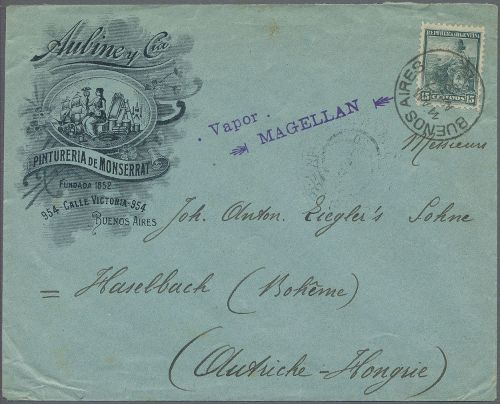 Aubine y Cía
PINTURERIA DE MONSERRAT
FUNDADA 1852
954-CALLE VICTORIA-954
BUENOS AIRES
Vapor.
MAGELLAN
REPUBLICA ARGENTINA
15 CENTAVOS 15
BUENOS AIRES
Messieurs
Joh. Anton. Ziegler's Sohne
= Haselbach (Bohême)
(Autriche-Hongrie)